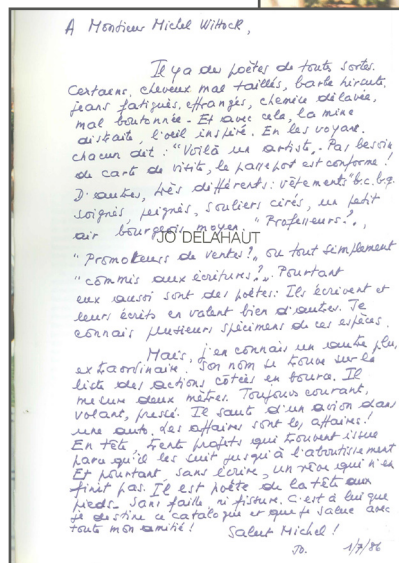 A Monsieur Michel Wittock,
Il y a des poètes de toutes sortes.
Certains, cheveux mal taillés, barbe hirsute,
jeans fatigués, effrangés, chemise délavée,
mal boutonnée - Et avec cela, la mine
distraite, l'oeil inspiré. En les voyant
chacun dit : "Voilà un artiste". Pas besoin
de carte de visite, le passeport est conforme !
D'autres, très différents : vêtements "b.c.b.g.
soignés, peignés, souliers cirés, un petit
air bourgeois moyen. "Professeurs ?",
JO DELAHAUT
"Promoteurs de ventes ?", ou tout simplement
"commis aux écritures ?". Pourtant
eux aussi sont des poètes : Ils écrivent et
leurs écrits en valent bien d'autres. Je
connais plusieurs spécimens de ces espèces.
Mais, j'en connais un autre plus
extraordinaire. Son nom se trouve sur la
liste des actions cotées en bourse. Il
mesure deux mètres. Toujours courant,
volant, pressé. Il saute d'un avion dans
une auto. Les affaires sont les affaires !
En tête trente projets qui trouvent issue
parce qu'il les suit jusqu'à l'aboutissement
Et pourtant sans écrire, un rêve qui n'en
finit pas. Il est poète de la tête aux
pieds. Sans faille, ni fissure. C'est à lui que
je destine ce catalogue et que je salue avec
toute mon amitié ! Salut Michel !
Jo. 1/7/86